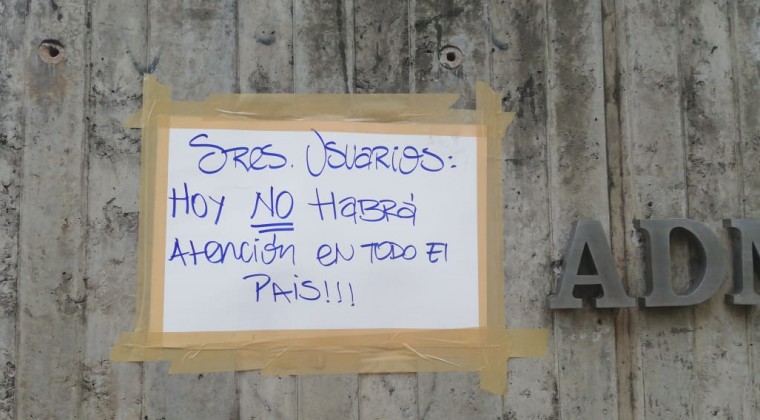 Sres. Usuarios:
Hoy NO Habrá
Atención en todo El
Pais!!!
ADM